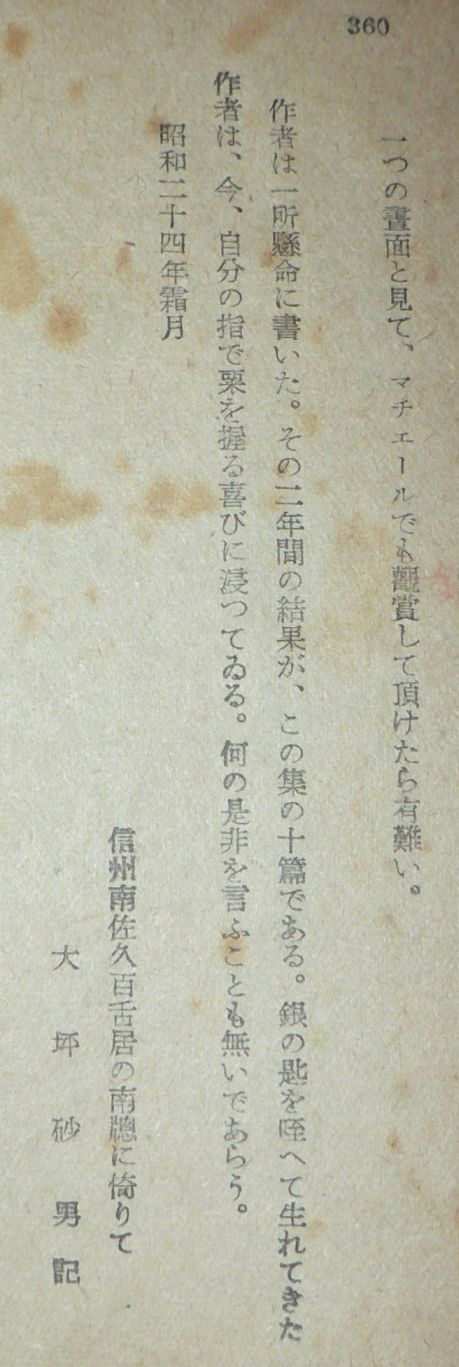 360
一つの畫面と見て、マチエールでも觀賞して頂けたら有難い。
作者は一所懸命に書いた。その二年間の結果が、この集の十篇である。銀の匙を咥へて生れてきた
作者は、今、自分の指で栗を握る喜びに浸つてゐる。何の是非を言ふことも無いであらう。
昭和二十四年霜月
信州南佐久百舌居の南牕に倚りて
大坪砂男記